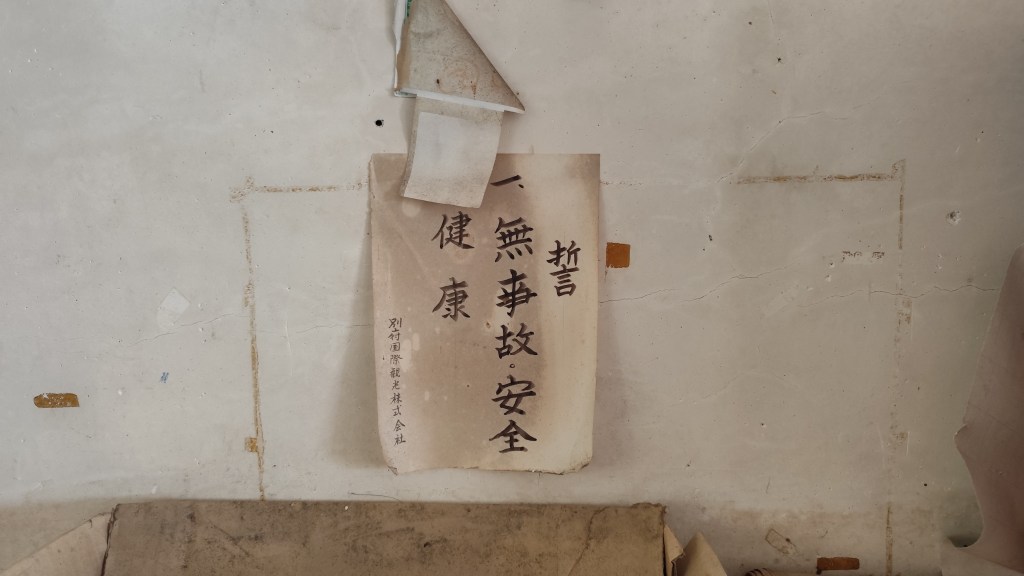 誓
一、無事故・安全
健康
別府国際観光株式会社